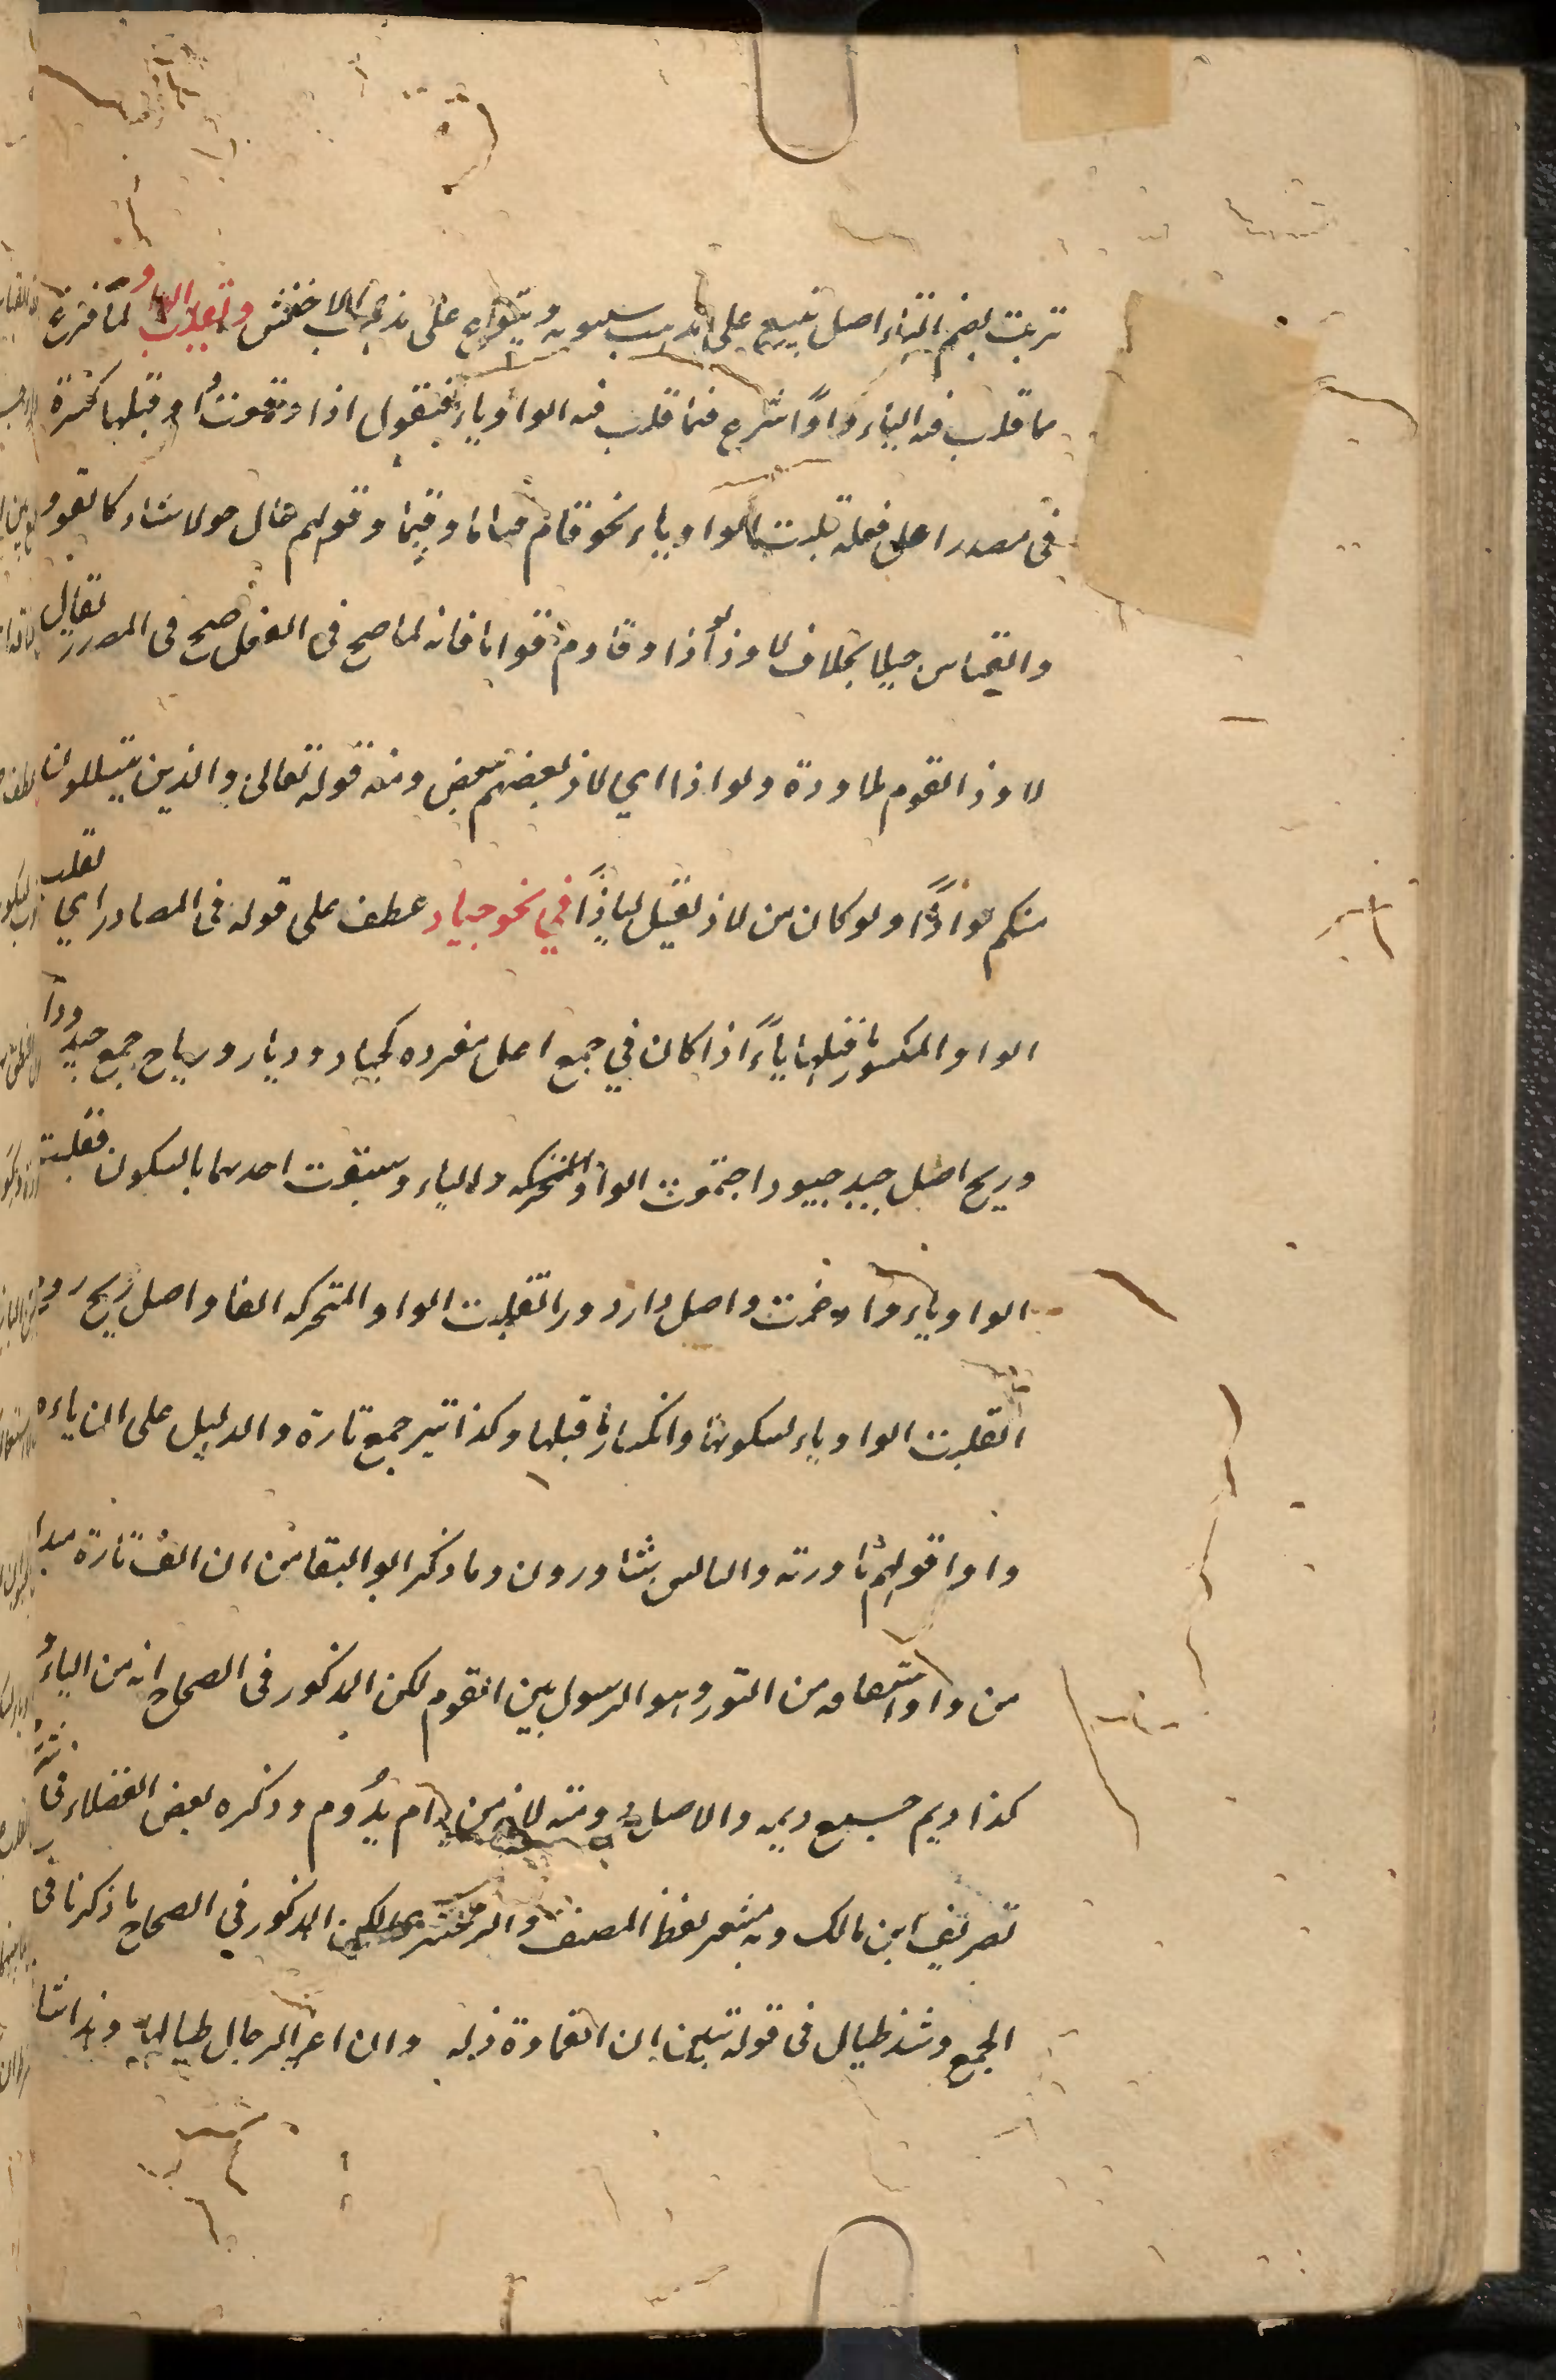 ترتب بضم التاء اصل تبيع على مذهب سيبويه وتبوع على مذهب الاخفش وتقلب الواو لما فرغ
مما قلب فيه الياء واوًا شرع فيما قلب فيه الواو ياء فيقول اذا وقعت او قبلها كسرة
في مصدر اعل فعله قلبت الواو ياء نحو قام قياما وقيما وقولهم حال حولا شاذ كالقود
والقياس حيلا بخلاف لاوذ لواذا وقاوم قواما فانه لما صح في الفعل صح في المصدر يقال
لاوذ القوم ملاوذة ولواذا اي لاذ بعضهم ببعض ومنه قوله تعالى والذين يتسللون
منكم لواذًا ولو كان من لاذ لقيل لياذًا في نحو جياد عطف على قوله في المصادر اي تقلب
الواو المكسور ما قبلها ياءً اذا كان في جمع اعل مفرده كجياد وديار ورياح جمع جيد ودار
وريح اصل جيد جيود اجتمعت الواو المتحركه والياء وسبقت احدهما بالسكون فقلبت
الواو ياء وادغمت واصل دار دور انقلبت الواو المتحركه الفا واصل ريح روح
انقلبت الواو ياء لسكونها وانكسار ما قبلها وكذا تير جمع تارة والدليل على ان ياءه
واوا قولهم تاورته والناس يتتاورون وما ذكر ابو البقا من ان الف تارة مبدل
من واو اشتقاقه من التور وهو الرسول بين القوم لكن المذكور في الصحاح انه من الياء
كذا ديم جمع ديمه والاصل دومة لانه من دام يدُوم وذكره بعض الفضلاء في
تصريف ابن مالك وبه يشعر لفظ المصنف والزمخشري لكن المذكور في الصحاح ما ذكرنا في
الجمع وشذ طيال في قوله تبين ان القماءة ذلة وان اعز الرجال طيالها وهذا شا